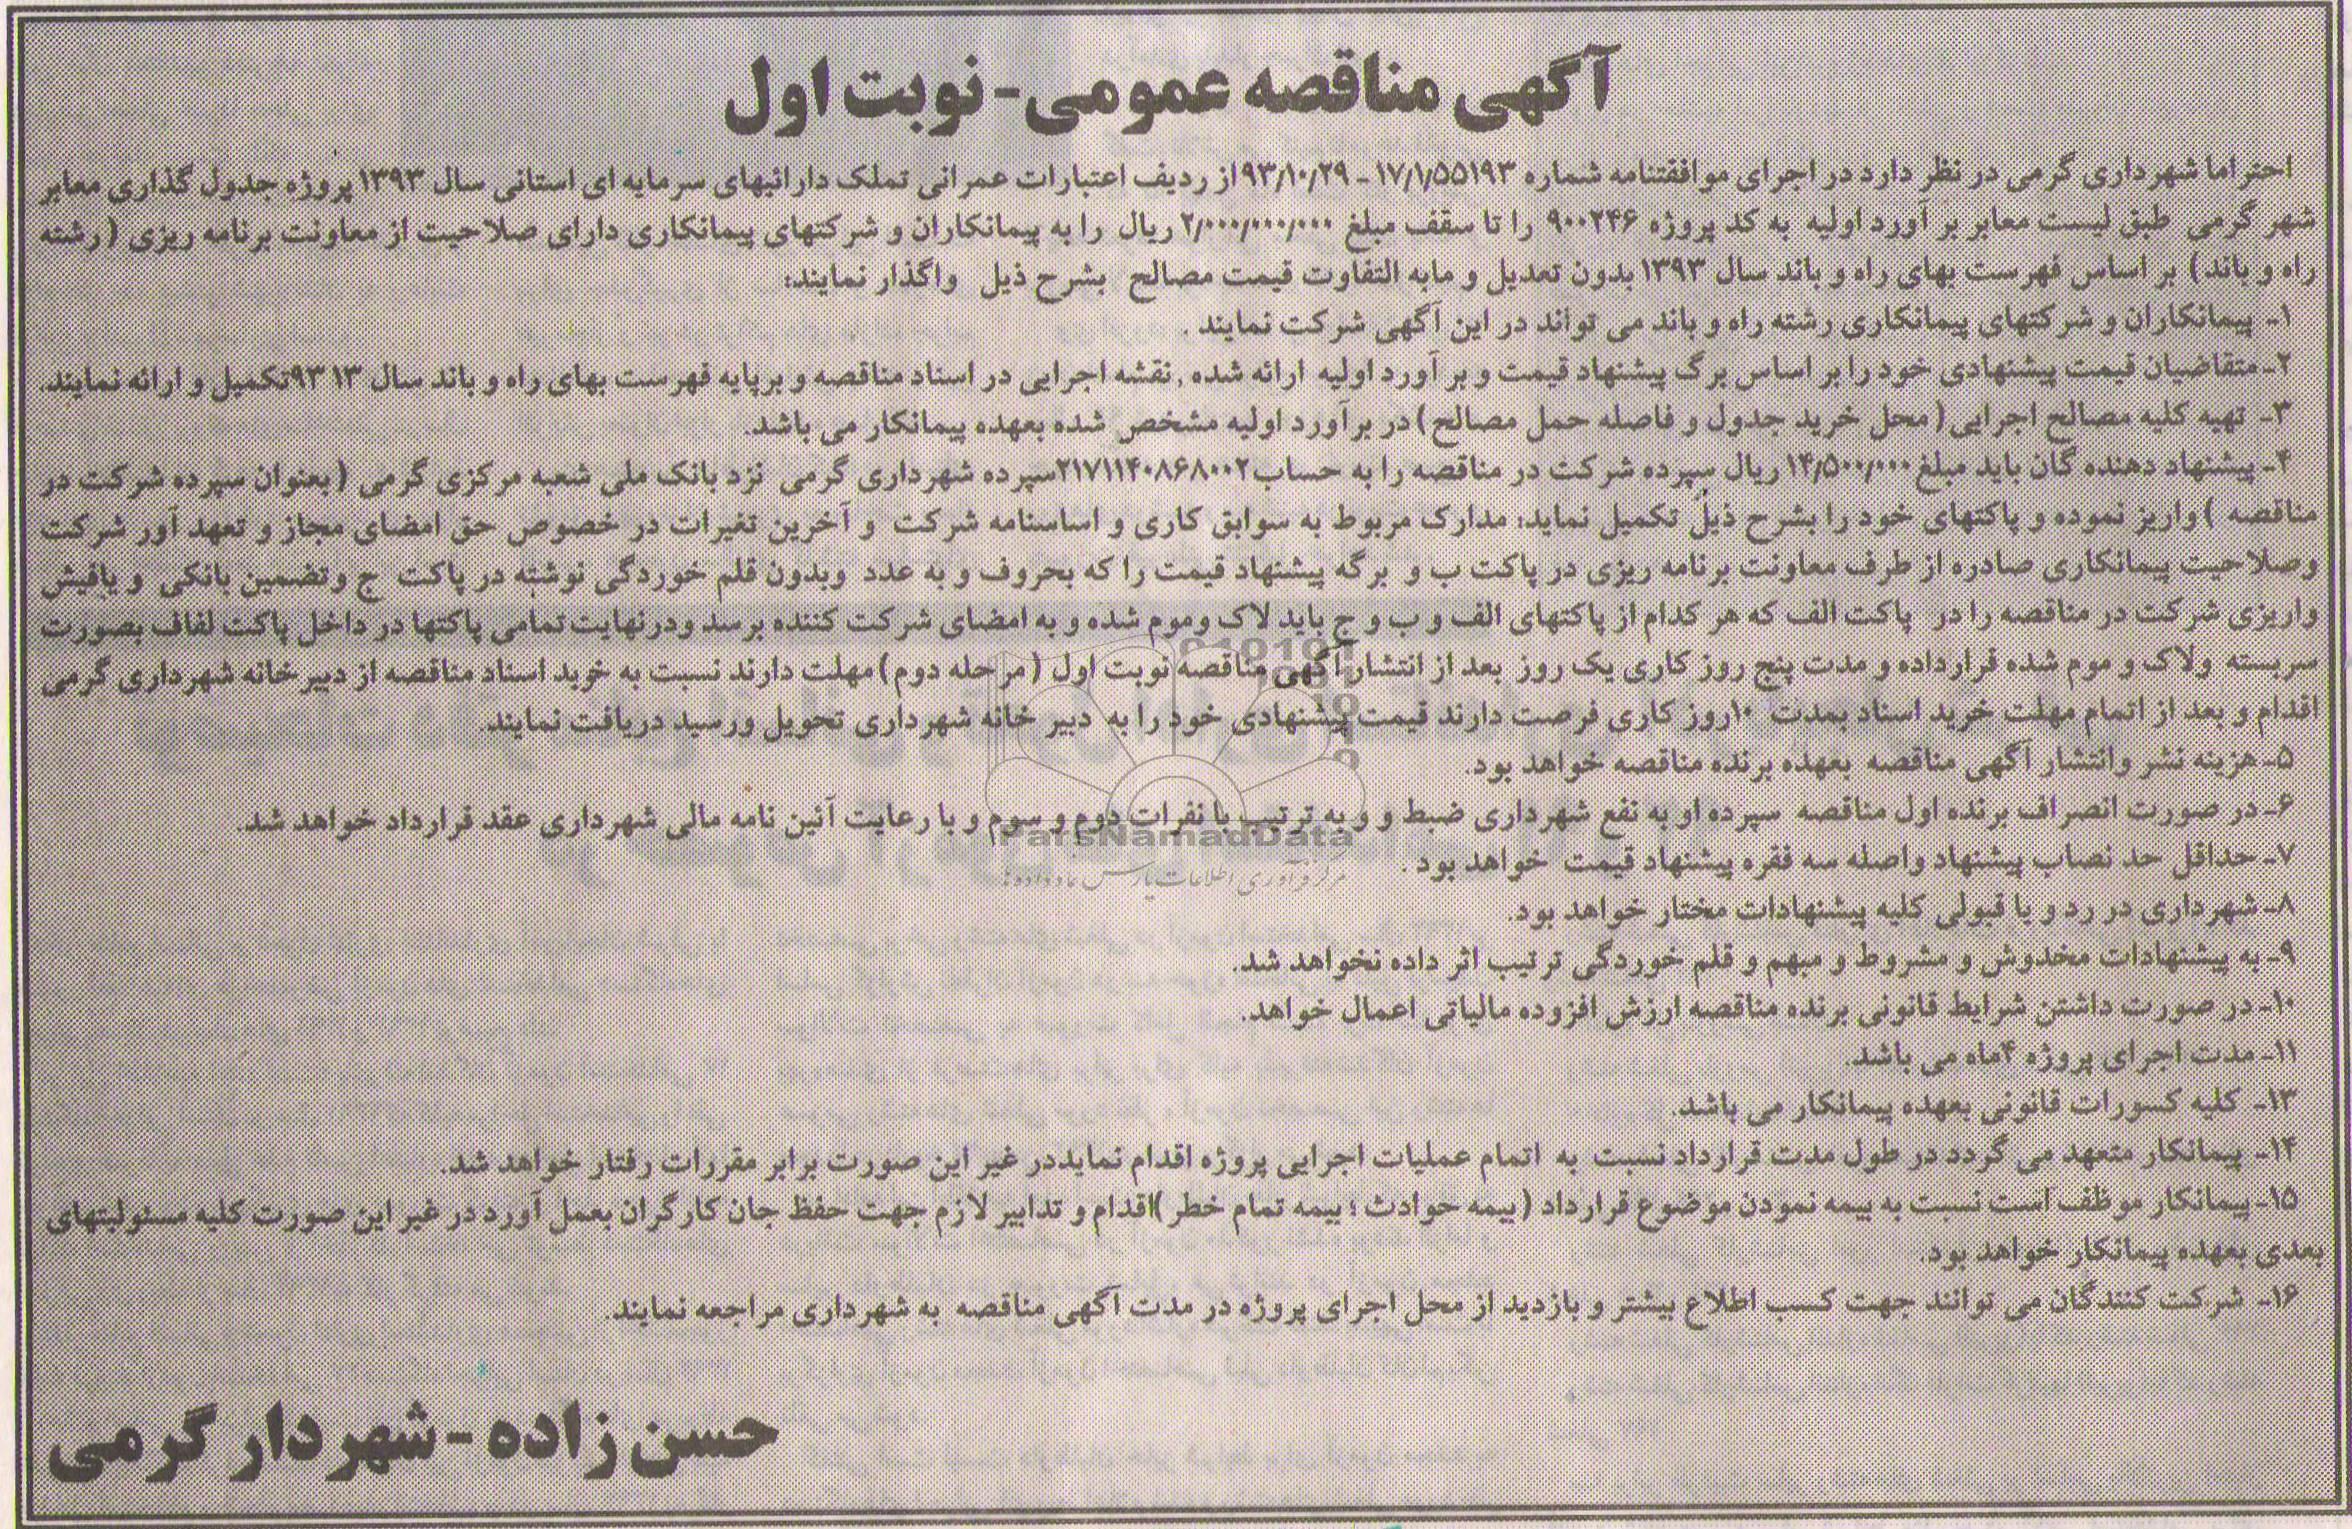 آگهی مناقصه عمومی - نوبت اول
احتراما شهرداری گرمی در نظر دارد در اجرای موافقتنامه شماره ۱۷/۱/۵۵۱۹۳ - ۹۳/۱۰/۲۹ از ردیف اعتبارات عمرانی تملک دارائیهای سرمایه ای استانی سال ۱۳۹۳ پروژه جدول گذاری معابر
شهر گرمی طبق لیست معابر بر آورد اولیه به کد پروژه ۹۰۰۲۴۶ را تا سقف مبلغ ۲/۰۰۰/۰۰۰/۰۰۰ ریال را به پیمانکاران و شرکتهای پیمانکاری دارای صلاحیت از معاونت برنامه ریزی ( رشته
راه و باند) بر اساس فهرست بهای راه و باند سال ۱۳۹۳ بدون تعدیل و مابه التفاوت قیمت مصالح بشرح ذیل واگذار نمایند:
۱- پیمانکاران و شرکتهای پیمانکاری رشته راه و باند می تواند در این آگهی شرکت نمایند .
۲- متقاضیان قیمت پیشنهادی خود را بر اساس برگ پیشنهاد قیمت و بر آورد اولیه ارائه شده , نقشه اجرایی در اسناد مناقصه و برپایه فهرست بهای راه و باند سال ۱۳ ۹۳تکمیل و ارائه نمایند.
۳- تهیه کلیه مصالح اجرایی( محل خرید جدول و فاصله حمل مصالح) در برآورد اولیه مشخص شده بعهده پیمانکار می باشد.
۴- پیشنهاد دهنده گان باید مبلغ ۱۴/۵۰۰/۰۰۰ ریال سپرده شرکت در مناقصه را به حساب ۲۱۷۱۱۴۰۸۶۸۰۰۲سپرده شهرداری گرمی نزد بانک ملی شعبه مرکزی گرمی ( بعنوان سپرده شرکت در
مناقصه ) واریز نموده و پاکتهای خود را بشرح ذیل تکمیل نماید: مدارک مربوط به سوابق کاری و اساسنامه شرکت و آخرین تغیرات در خصوص حق امضای مجاز و تعهد آور شرکت
وصلاحیت پیمانکاری صادره از طرف معاونت برنامه ریزی در پاکت ب و برگه پیشنهاد قیمت را که بحروف و به عدد وبدون قلم خوردگی نوشته در پاکت ج وتضمین بانکی و یافیش
واریزی شرکت در مناقصه را در پاکت الف که هر کدام از پاکتهای الف و ب و ج باید لاک وموم شده و به امضای شرکت کننده برسد ودرنهایت تمامی پاکتها در داخل پاکت لفاف بصورت
سربسته ولاک و موم شده قرارداده و مدت پنج روز کاری یک روز بعد از انتشار آگهی مناقصه نوبت اول ( مرحله دوم) مهلت دارند نسبت به خرید اسناد مناقصه از دبیرخانه شهرداری گرمی
اقدام و بعد از اتمام مهلت خرید اسناد بمدت ۱۰روز کاری فرصت دارند قیمت پیشنهادی خود را به دبیر خانه شهرداری تحویل ورسید دریافت نمایند.
۵- هزینه نشر وانتشار آگهی مناقصه بعهده برنده مناقصه خواهد بود.
۶- در صورت انصراف برنده اول مناقصه سپرده او به نفع شهرداری ضبط و و به ترتیب با نفرات دوم و سوم و با رعایت آئین نامه مالی شهرداری عقد قرارداد خواهد شد.
۷- حداقل حد نصاب پیشنهاد واصله سه فقره پیشنهاد قیمت خواهد بود .
ParsNamadData
مرکز فرآوری اطلاعات پارس نماد داده ها
۸- شهرداری در رد و یا قبولی کلیه پیشنهادات مختار خواهد بود.
۹- به پیشنهادات مخدوش و مشروط و مبهم و قلم خوردگی ترتیب اثر داده نخواهد شد.
۱۰- در صورت داشتن شرایط قانونی برنده مناقصه ارزش افزوده مالیاتی اعمال خواهد.
۱۱- مدت اجرای پروژه ۴ماه می باشد.
۱۳- کلیه کسورات قانونی بعهده پیمانکار می باشد.
۱۴- پیمانکار متعهد می گردد در طول مدت قرارداد نسبت به اتمام عملیات اجرایی پروژه اقدام نمایددر غیر این صورت برابر مقررات رفتار خواهد شد.
۱۵- پیمانکار موظف است نسبت به بیمه نمودن موضوع قرارداد (بیمه حوادث ؛ بیمه تمام خطر )اقدام و تدابیر لازم جهت حفظ جان کارگران بعمل آورد در غیر این صورت کلیه مسئولیتهای
بعدی بعهده پیمانکار خواهد بود.
۱۶- شرکت کنندگان می توانند جهت کسب اطلاع بیشتر و بازدید از محل اجرای پروژه در مدت آگهی مناقصه به شهرداری مراجعه نمایند.
حسن زاده - شهردار گرمی